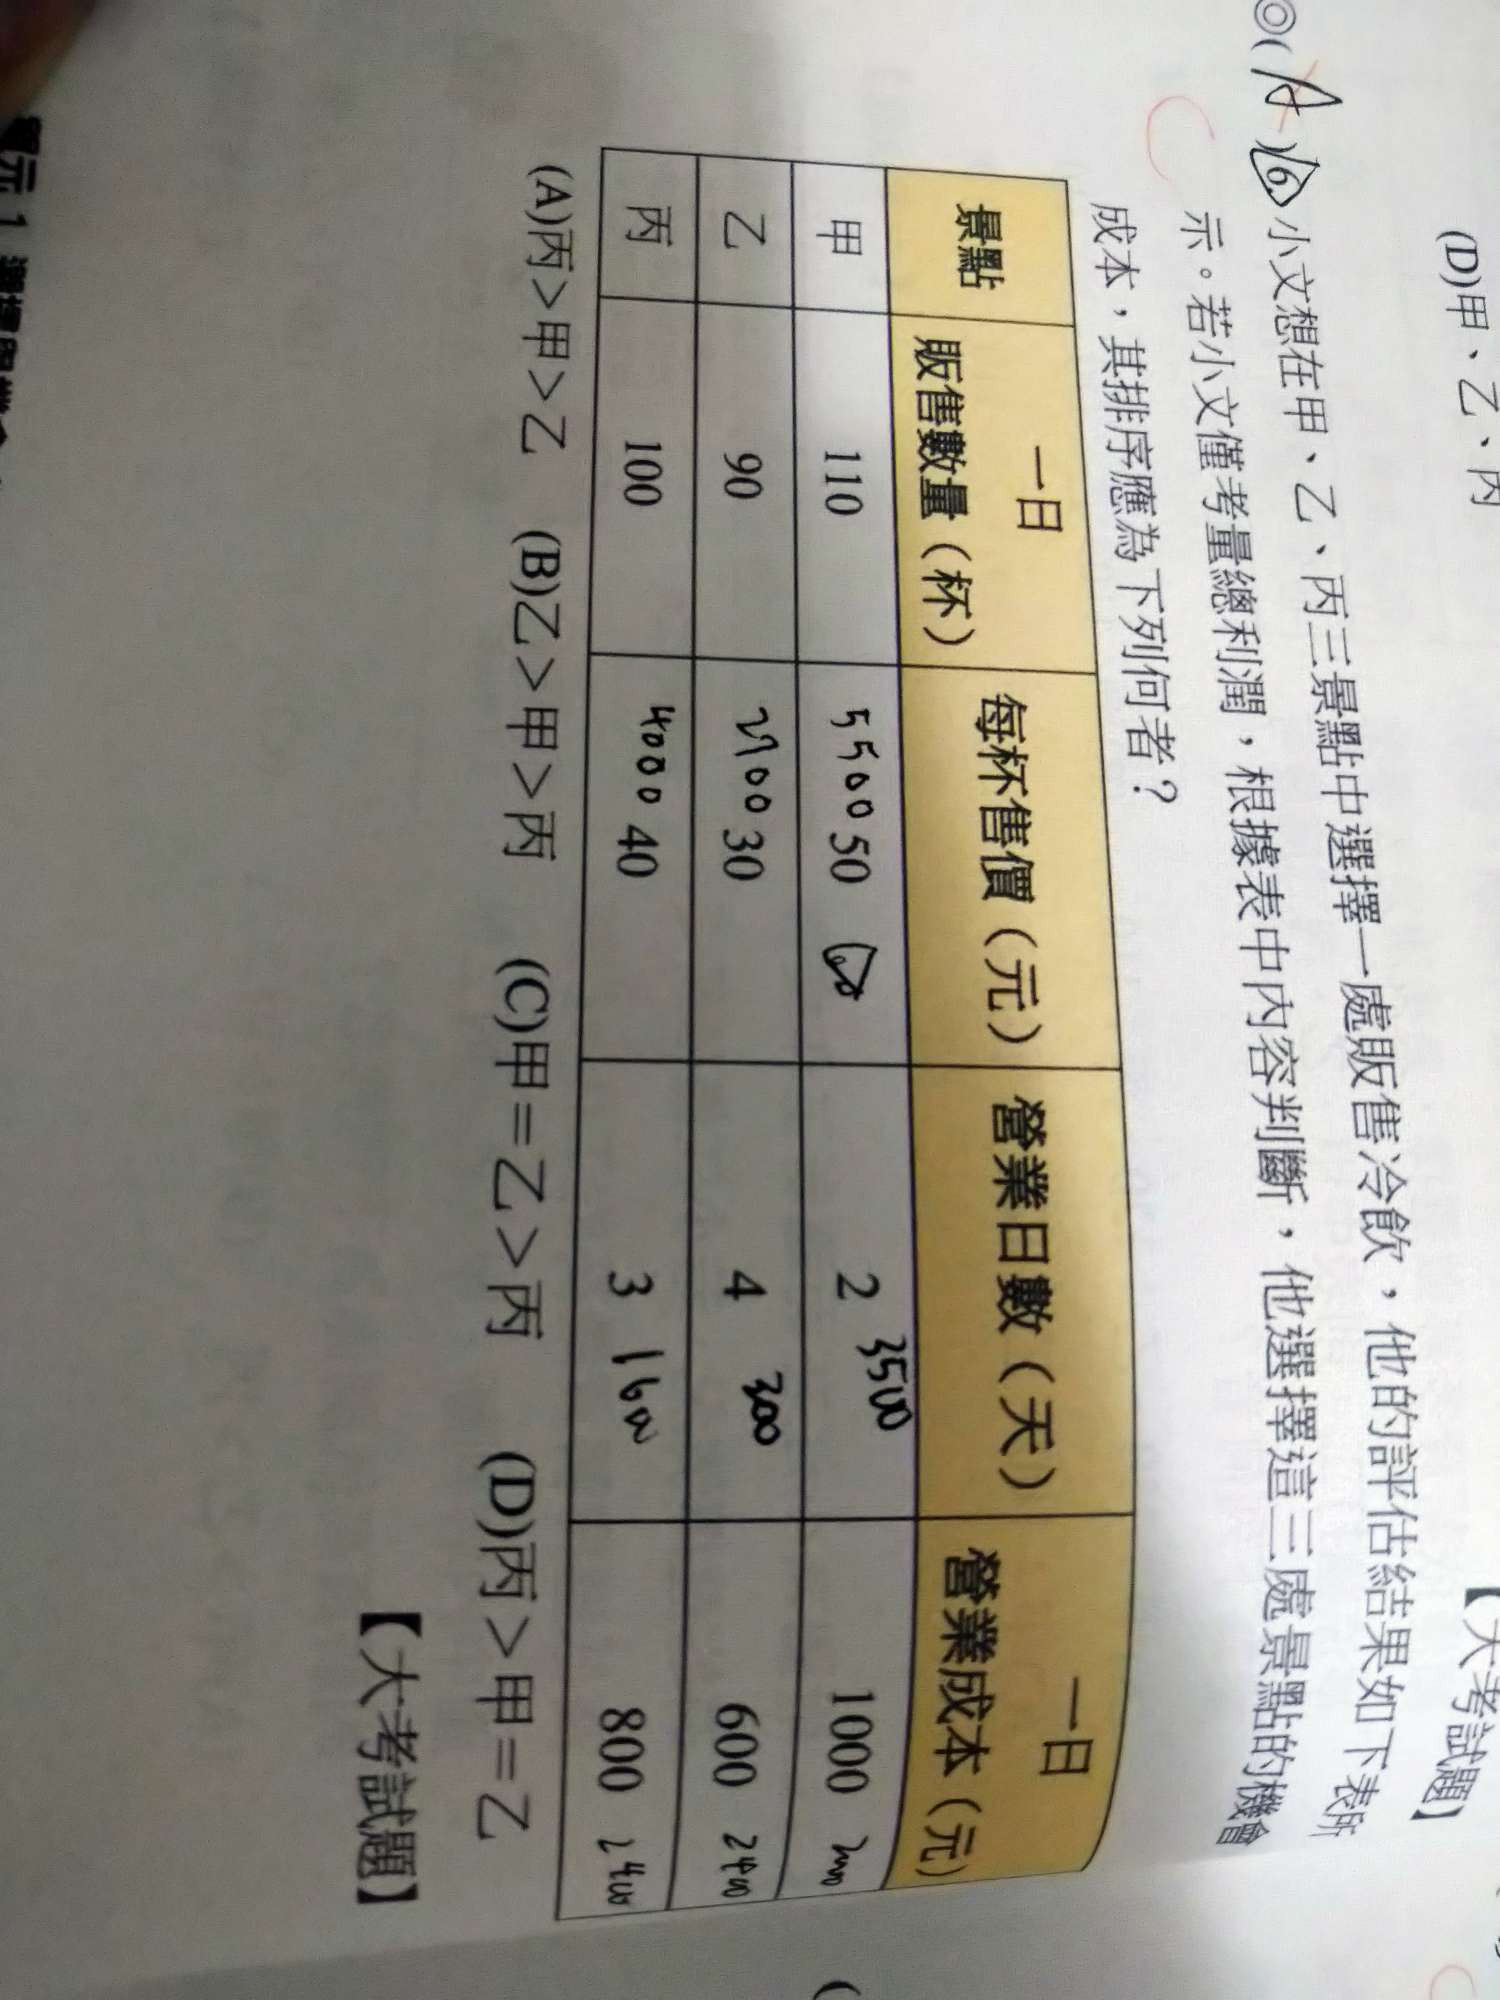 (D)甲、乙、丙
【大考試題】
◎( A )16. 小文想在甲、乙、丙三景點中選擇一處販售冷飲，他的評估結果如下表所
C
示。若小文僅考量總利潤，根據表中內容判斷，他選擇這三處景點的機會
成本，其排序應為下列何者？
景點 一日販售數量（杯） 每杯售價（元） 營業日數（天） 一日營業成本（元）
甲 110 5500 50 2 3500 1000
乙 90 2700 30 4 300 600 2400
丙 100 4000 40 3 1600 800 2400
(A)丙＞甲＞乙 (B)乙＞甲＞丙 (C)甲＝乙＞丙 (D)丙＞甲＝乙
【大考試題】
單元 1